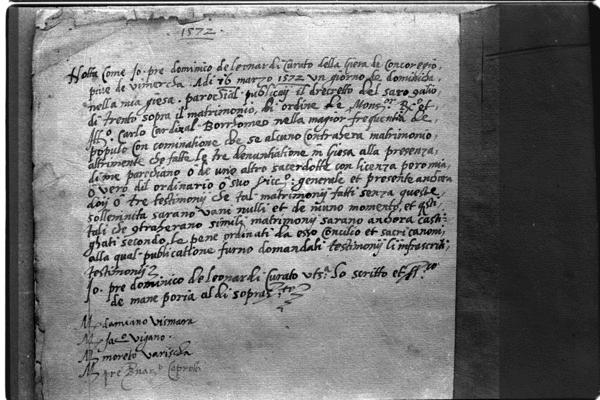 1572.
Notta Come Jo. pre dominico de leonardi Curato della Giesa de Concorezo
pive de vimercha. Adi 16 marzo 1572 un giorno de dominicha,
nella mia giesa. parochial. publicaij il decretto del sacro
di trento sopra il matrimonio, di ordine de Mons.r R.mo et
Ill.mo Carlo Cardinal Borromeo nella magior frequentia de
populo con cominatione che se alcuno contrahera matrimonio,
altrimente che fatte le tre denuntiatione in Giesa alla presenza,
di me parochiano o de uno altro sacerdotte con licenza per mia,
o vero dil ordinario o suo Vic.o generale et presente anchora
doij o tre testimonij che tal matrimonij fatti senza queste
sollemnita sarano vani nulli et de niuno momento, et
tali che contraherano simili matrimonij sarano anchora casti
ghati secondo le pene ordinati da esso Concilio et sacri canoni,
alla qual publicatione furno domandati testimonij li infrascritti
testimonij
Jo. pre dominico de leonardi Curato ut s.a ho scritto et
de mane poria al di sopra
M. damiano vismara
M. Jac.o vigano.
M. moreto varischa
M. pre